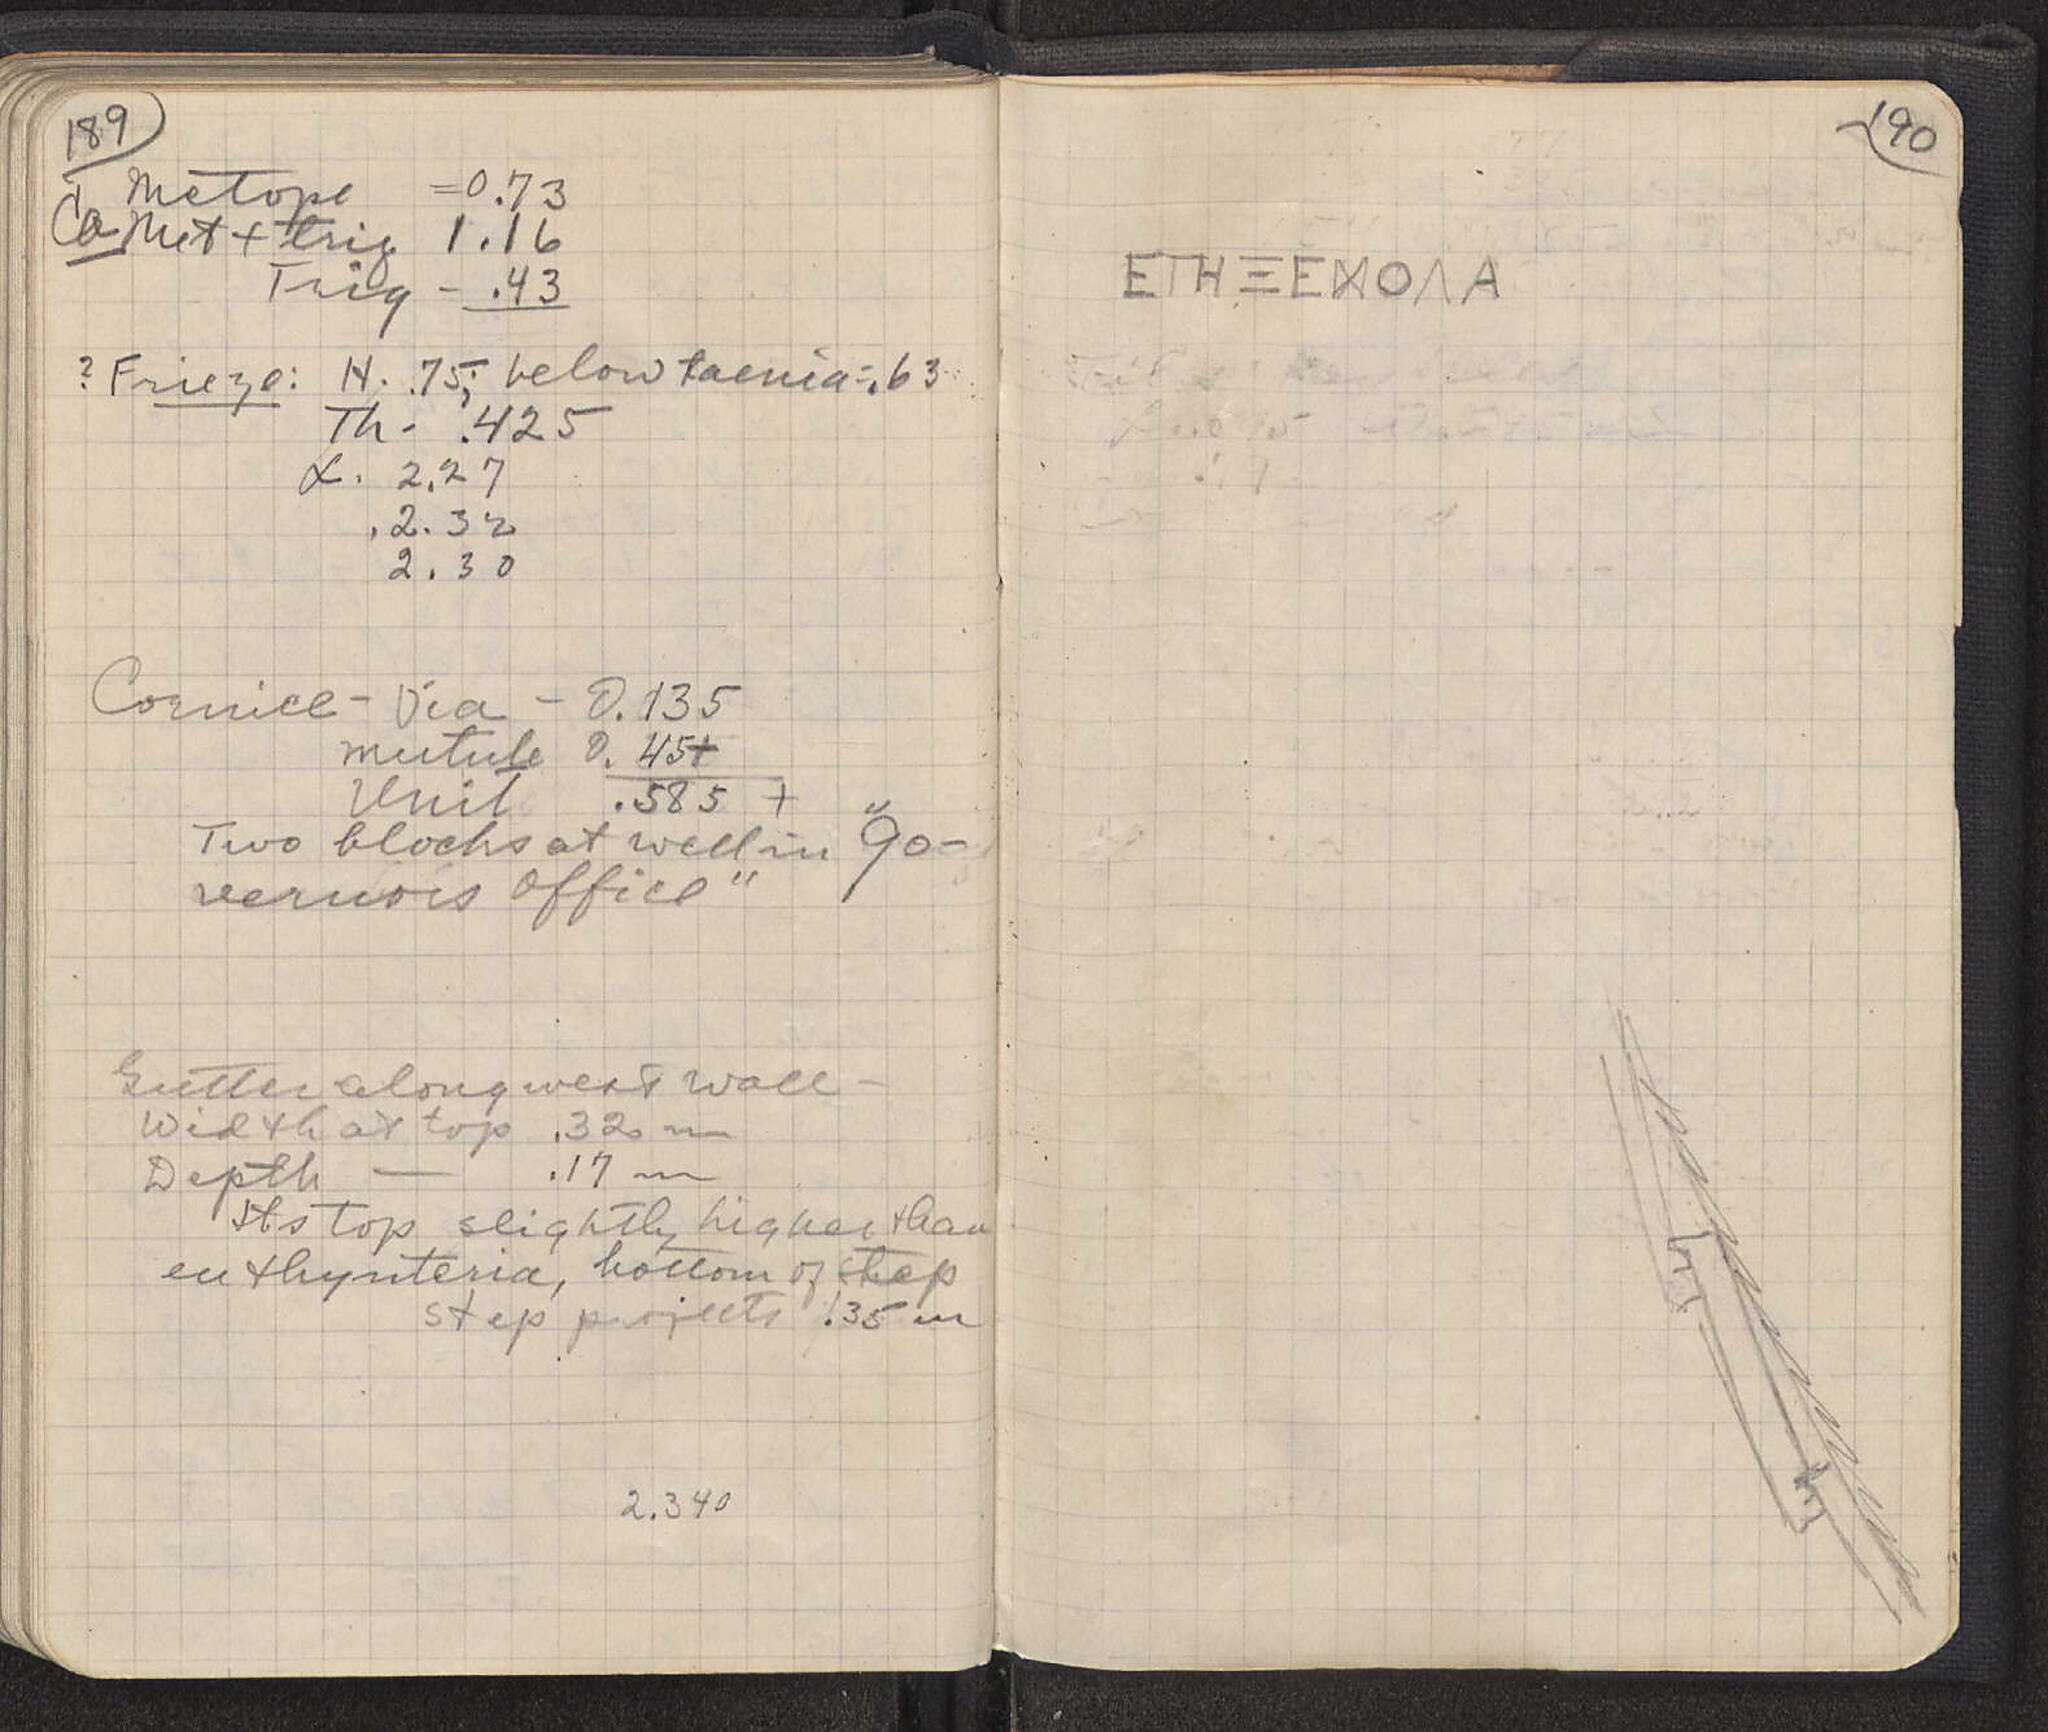 189
Metope = 0.73
Ca Met + trig 1.16
Trig - .43
? Frieze: H. .75; below taenia = .63
Th - .425
L. 2.27
.2.32
2.30
Cornice - Via - 0.135
mutule 0.45+
Unit .585 +
Two blocks at well in "Go-
vernors Office"
Gutter along west wall -
Width at top .32 m
Depth — .17 m
Its top slightly higher than
euthynteria, bottom of step
step projects .35 m
2.340
190